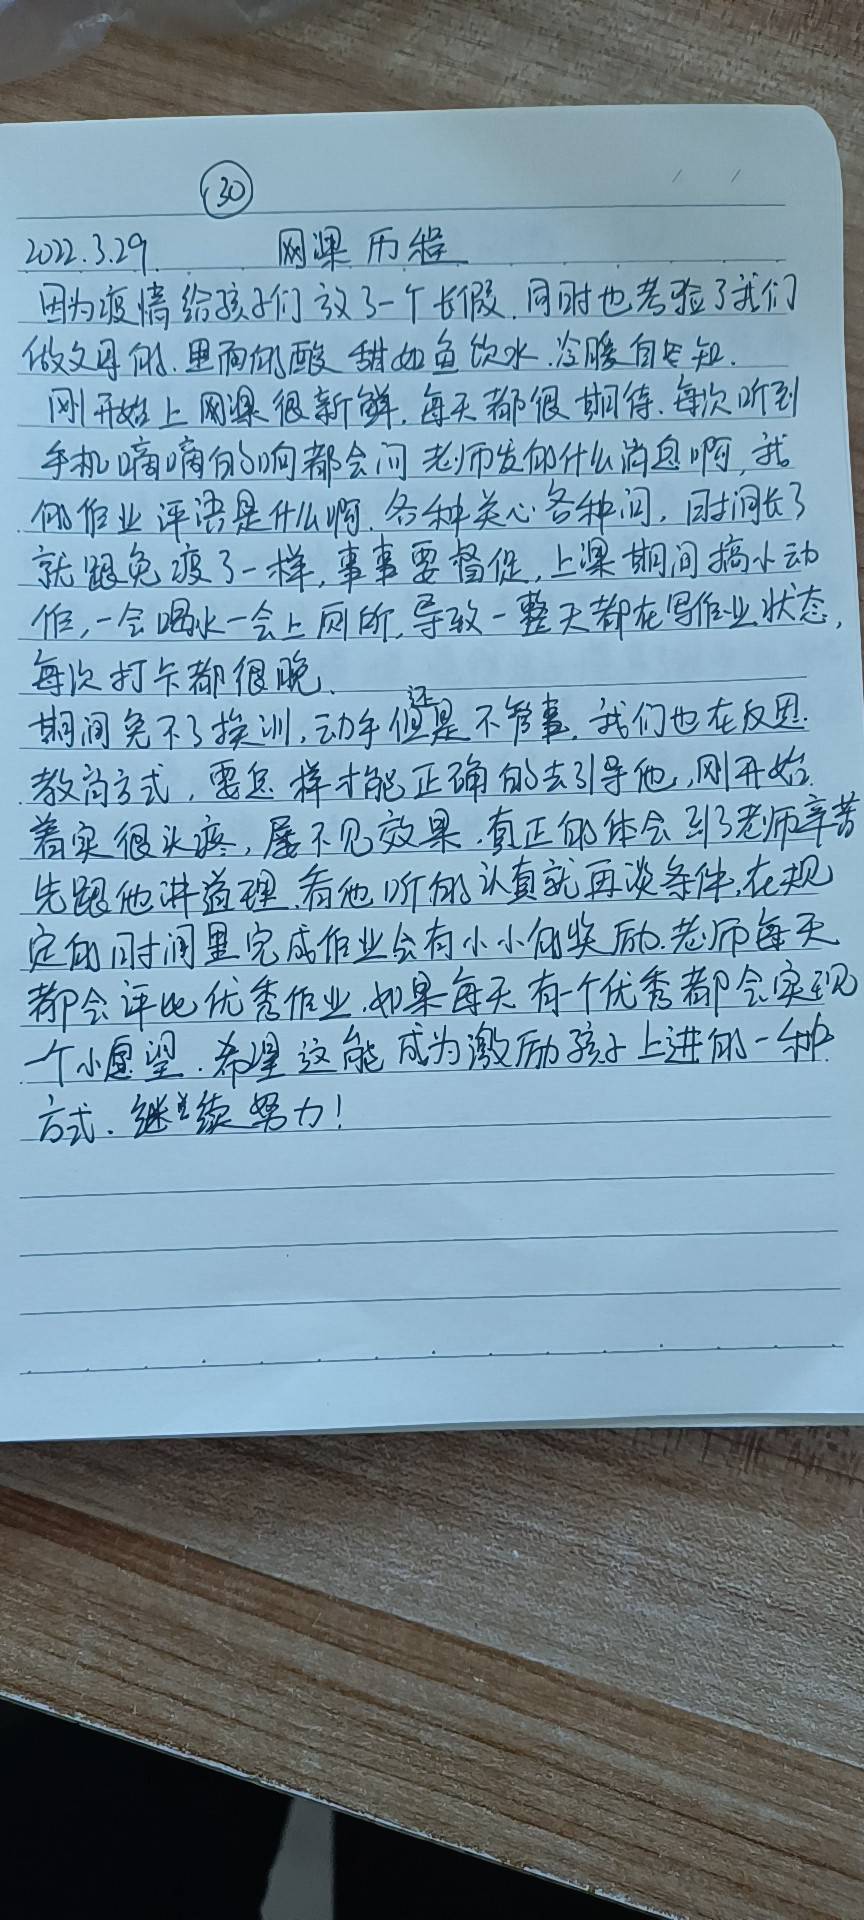 30
2022.3.29 网课历程
因为疫情给孩子们放了一个长假.同时也考验了我们
做父母的.里面的酸甜如鱼饮水.冷暖自知.
刚开始上网课很新鲜.每天都很期待.每次听到
手机嘀嘀的响都会问老师发的什么消息啊,我
的作业评语是什么啊.各种关心各种问,时间长了
就跟免疫了一样,事事要督促,上课期间搞小动
作,一会喝水一会上厕所.导致一整天都在写作业状态,
每次打卡都很晚.
期间免不了挨训,动手但还是不管事.我们也在反思.
教育方式,要怎样才能正确的去引导他,刚开始.
着实很头疼,屡不见效果.真正的体会到了老师辛苦
先跟他讲道理.看他听的认真就再谈条件,在规
定的时间里完成作业会有小小的奖励.老师每天
都会评比优秀作业.如果每天有一个优秀都会实现
一个小愿望.希望这能成为激励孩子上进的一种
方式.继续努力!